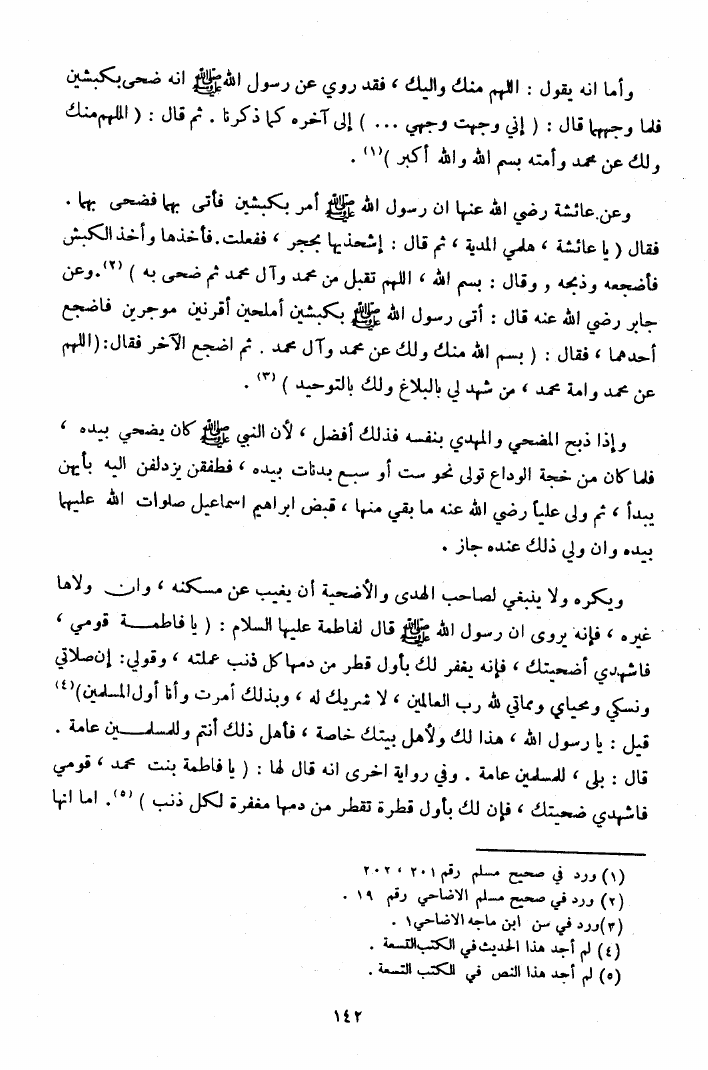 وأما انه يقول : اللهم منك واليك ، فقد روي عن رسول الله ﷺ انه ضحى بكبشين
فلما وجهها قال : ( إني وجهت وجهي ... ) إلى آخره كما ذكرنا . ثم قال : ( اللهم منك
ولك عن محمد وأمته بسم الله والله أكبر )(١) .
وعن عائشة رضي الله عنها ان رسول الله ﷺ أمر بكبشين فأتى بهما فضحى بهما .
فقال ( يا عائشة ، هلمي المدية ، ثم قال : إشحذيها بحجر ، ففعلت . فأخذها وأخذ الكبش
فأضجعه وذبحه , وقال : بسم الله ، اللهم تقبل من محمد وآل محمد ثم ضحى به ) (٢) . وعن
جابر رضي الله عنه قال : أتى رسول الله ﷺ بكبشين أملحين أقرنين موجرين فاضجع
أحدهما ، فقال : ( بسم الله منك ولك عن محمد وآل محمد . ثم اضجع الآخر فقال : ( اللهم
عن محمد وامة محمد ، من شهد لي بالبلاغ ولك بالتوحيد ) (٣) .
وإذا ذبح المضحي والمهدي بنفسه فذلك أفضل ، لأن النبي ﷺ كان يضحي بيده ،
فلما كان من خجة الوداع تولى نحو ست أو سبع بدنات بيده ، فطفقن يزدلفن اليه بأيهن
يبدأ ، ثم ولى علياً رضي الله عنه ما بقي منها ، قبض ابراهيم اسماعيل صلوات الله عليهما
بيده وان ولي ذلك عنده جاز .
ويكره ولا ينبغي لصاحب الهدى والأضحية أن يغيب عن مسكنه ، وان ولاها
غيره ، فإنه يروى ان رسول الله ﷺ قال لفاطمة عليها السلام : ( يا فاطمة قومي ،
فاشهدي أضحيتك ، فإنه يغفر لك بأول قطر من دمها كل ذنب عملته ، وقولي : إن صلاتي
ونسكي ومحياي ومماتي لله رب العالمين ، لا شريك له ، وبذلك أمرت وأنا أول المسلمين )(٤)
قيل : يا رسول الله ، هذا لك ولأهل بيتك خاصة ، فأهل ذلك أنتم وللمسلمين عامة .
قال : بلى ، للمسلمين عامة . وفي رواية اخرى انه قال لها : ( يا فاطمة بنت محمد ، قومي
فاشهدي ضحيتك ، فإن لك بأول قطرة تقطر من دمها مغفرة لكل ذنب ) (٥) . اما انها
(١) ورد في صحيح مسلم رقم ٢٠١ ، ٢٠٢
(٢) ورد في صحيح مسلم الاضاحي رقم ١٩ .
(٣) ورد في سن ابن ماجه الاضاحي ١ .
(٤) لم أجد هذا الحديث في الكتب التسعة .
(٥) لم أجد هذا النص في الكتب التسعة .
١٤٢